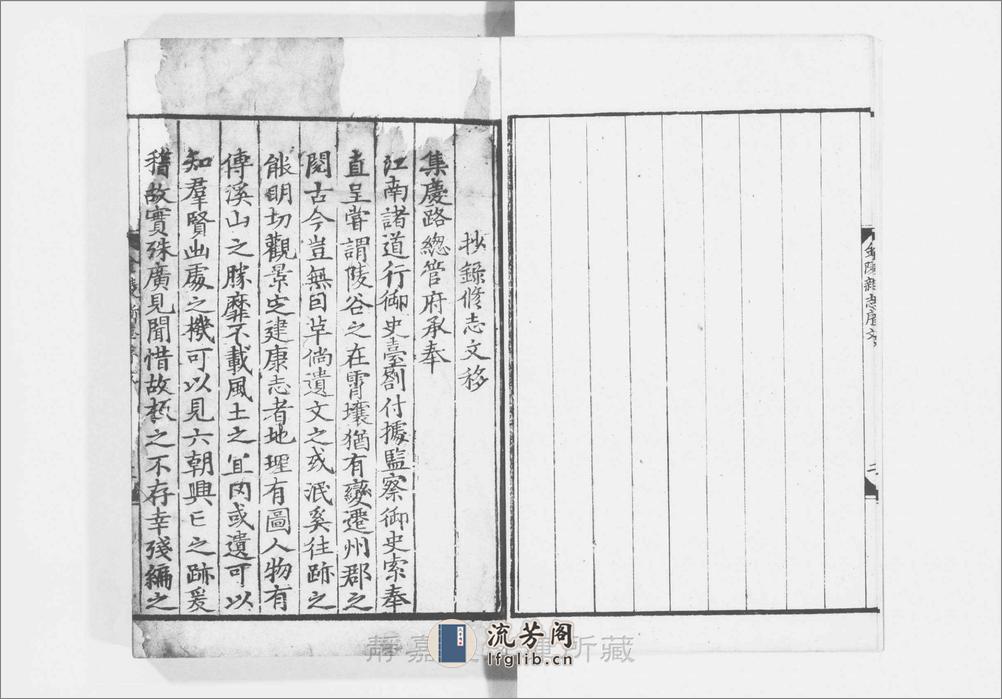 金陵新志序文
二
抄錄修志文移
集慶路總管府承奉
江南諸道行御史臺劄付據監察御史索奉
直呈嘗謂陵谷之在霄壤猶有變遷州郡之
閱古今豈無因草倘遺文之或泯奚往跡之
能明切觀景定建康志者地理有圖人物有
傳溪山之勝靡不載風土之宜罔或遺可以
知羣賢出處之機可以見六朝興亡之跡爰
稽故實殊廣見聞惜故板之不存幸殘編之
靜嘉 所藏
流芳阁
lfglib.cn